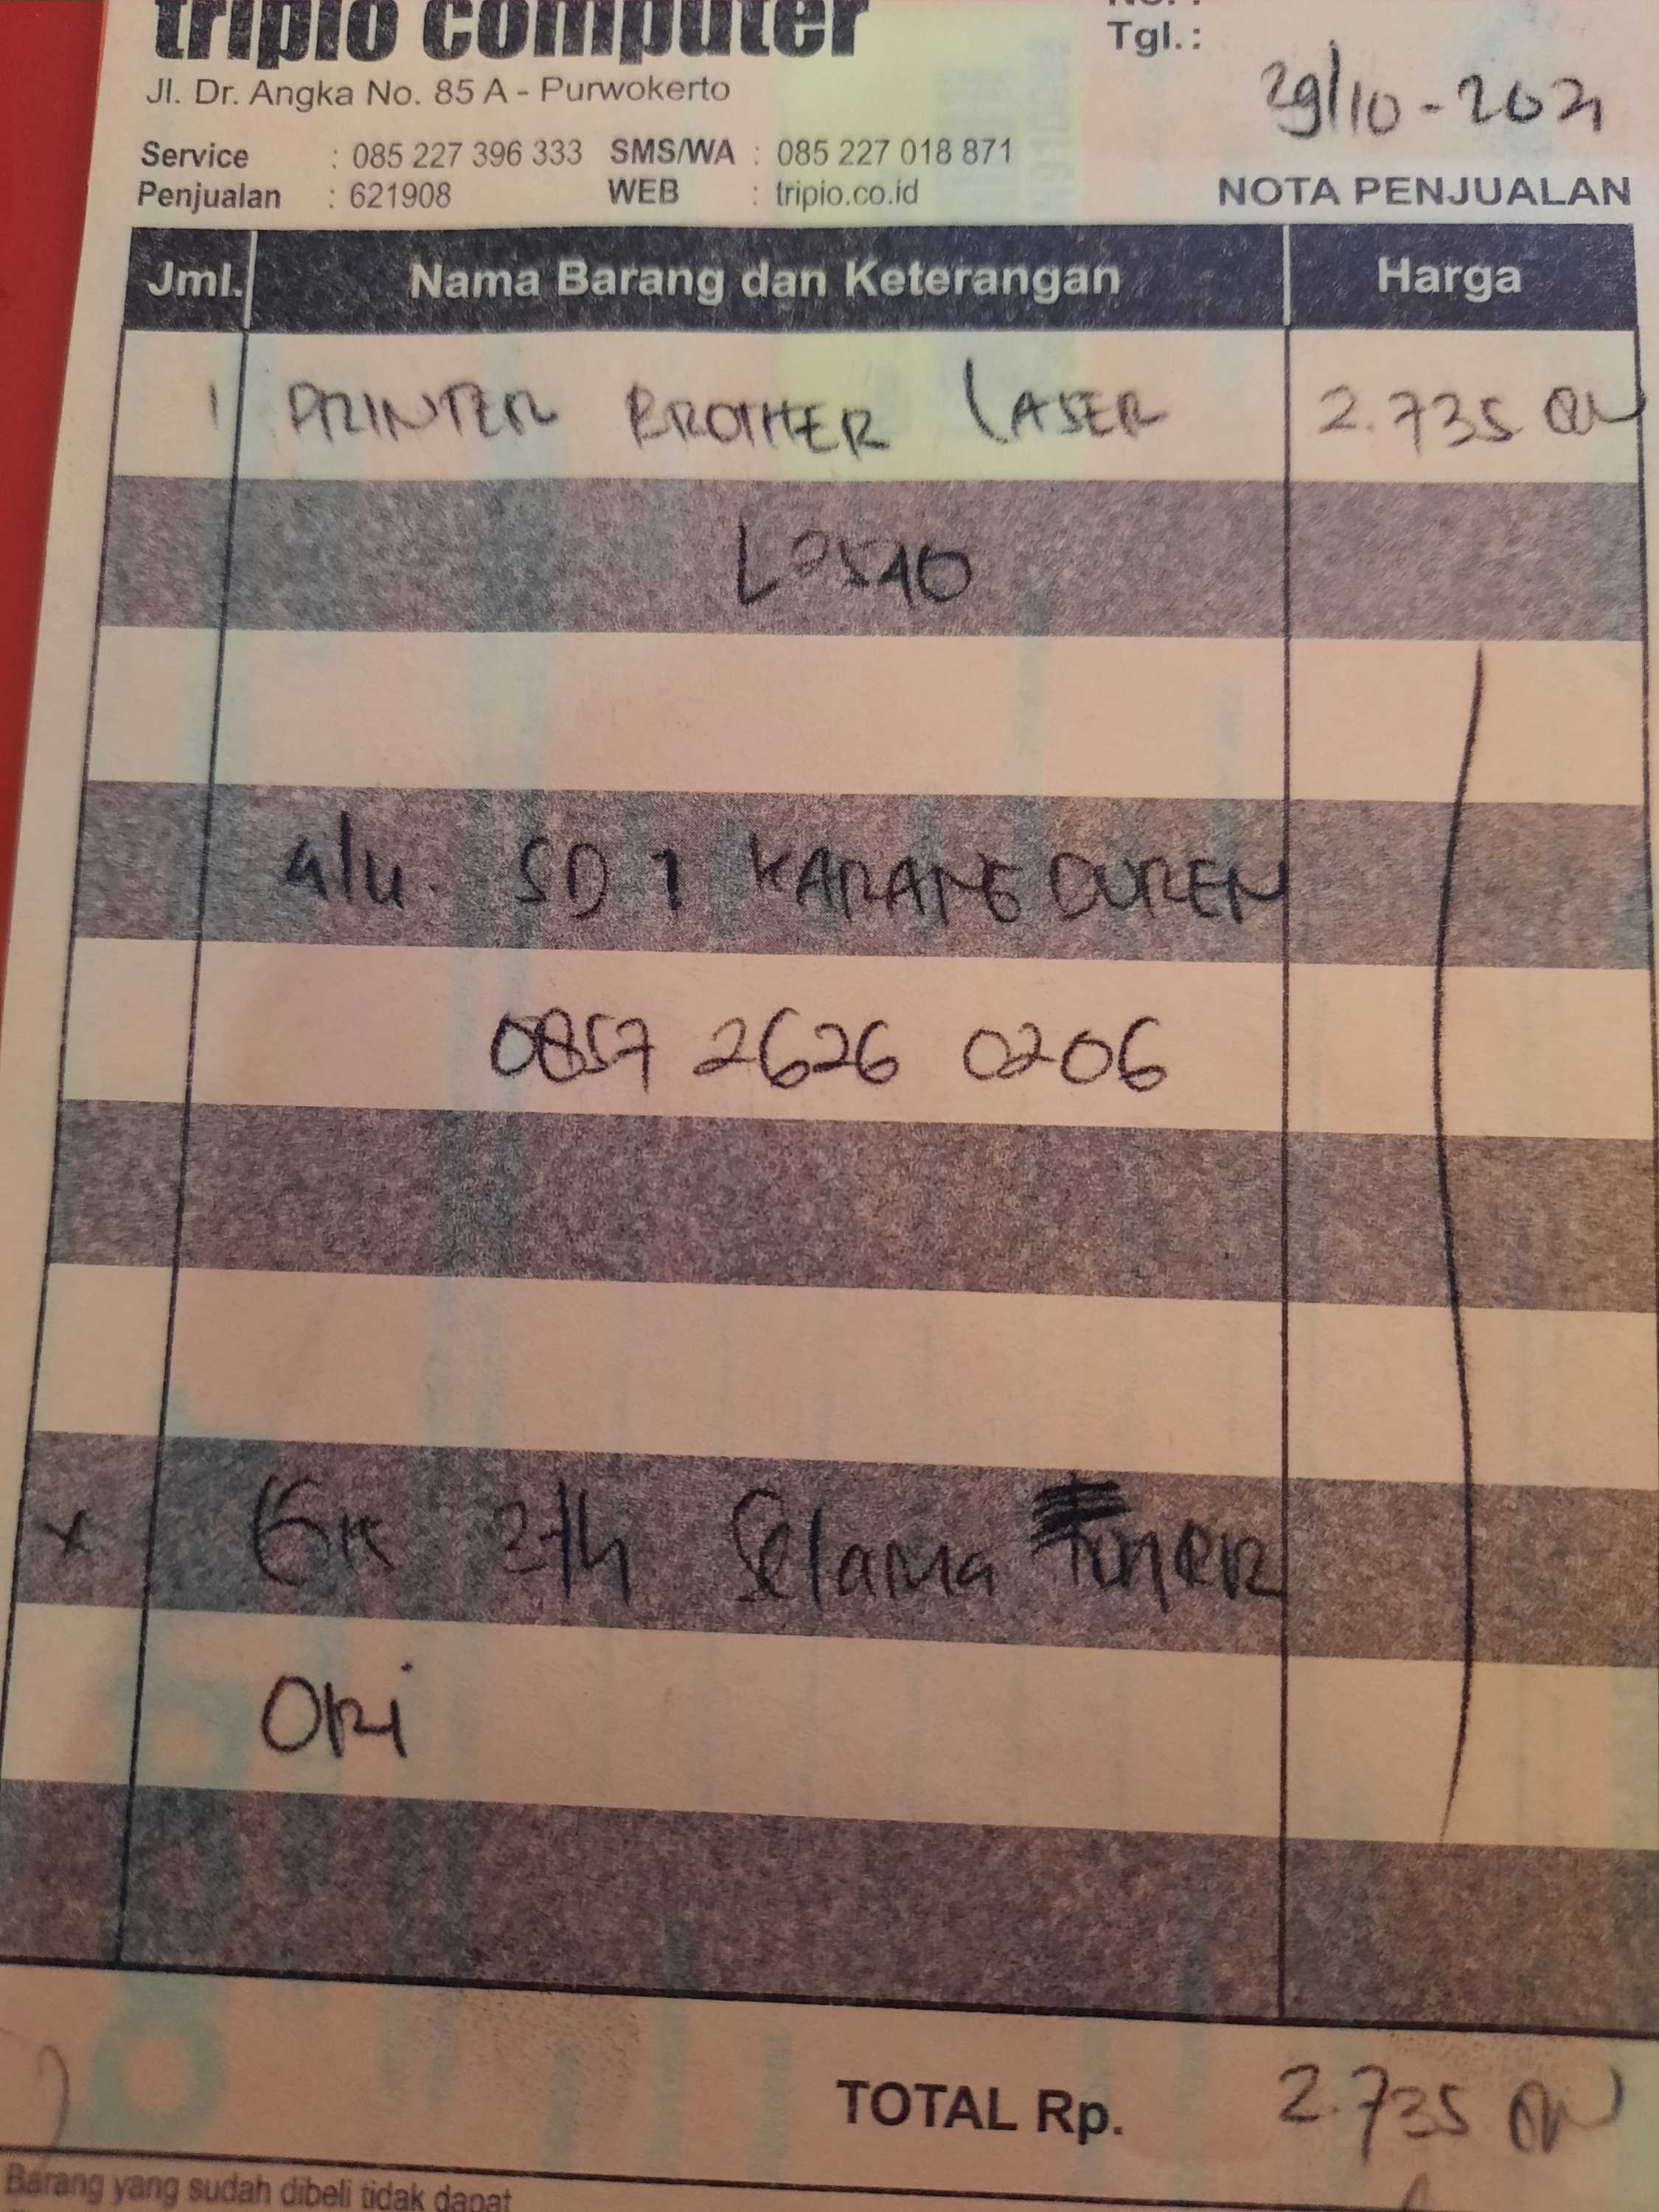 tripio computer
No. :
Tgl. :
Jl. Dr. Angka No. 85 A - Purwokerto
29/10-2021
Service : 085 227 396 333 SMS/WA : 085 227 018 871
Penjualan : 621908 WEB : tripio.co.id
NOTA PENJUALAN
Jml. Nama Barang dan Keterangan Harga
1 PRINTER BROTHER LASER 2.735
L2540
a/u. SD 1 KARANG DUREN
0857 2626 0206
x GR 3th Selama
ORi
TOTAL Rp. 2.735
Barang yang sudah dibeli tidak dapat